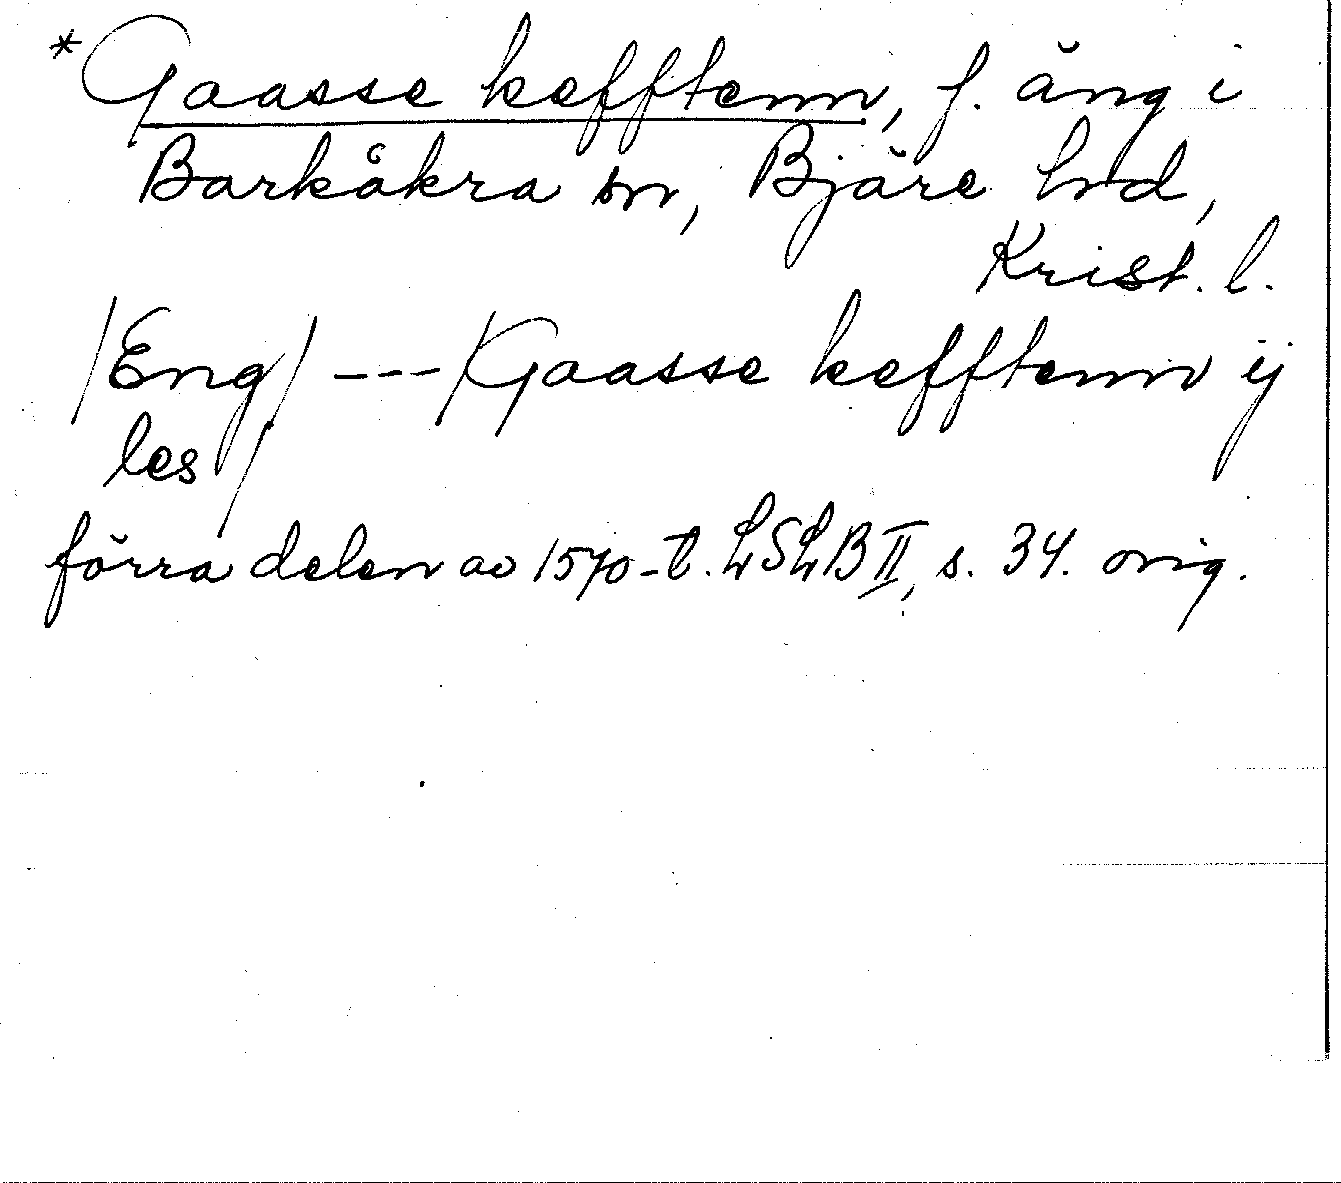 *Gaasse kefftenn, f. äng i
Barkåkra sn, Bjäre hd,
Krist. l.
/Eng/ --- /Gaasse kefftenn ij
les/
förra delen av 1570-t. LSLB II, s. 34. orig.